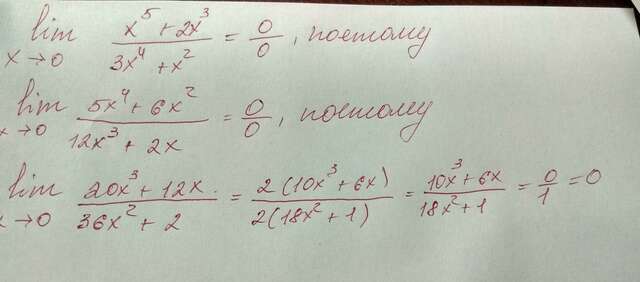 lim x→0 (x⁵ + 2x³)/(3x⁴ + x²) = 0/0, поэтому
lim x→0 (5x⁴ + 6x²)/(12x³ + 2x) = 0/0, поэтому
lim x→0 (20x³ + 12x)/(36x² + 2) = 2(10x³ + 6x)/2(18x² + 1) = (10x³ + 6x)/(18x² + 1) = 0/1 = 0